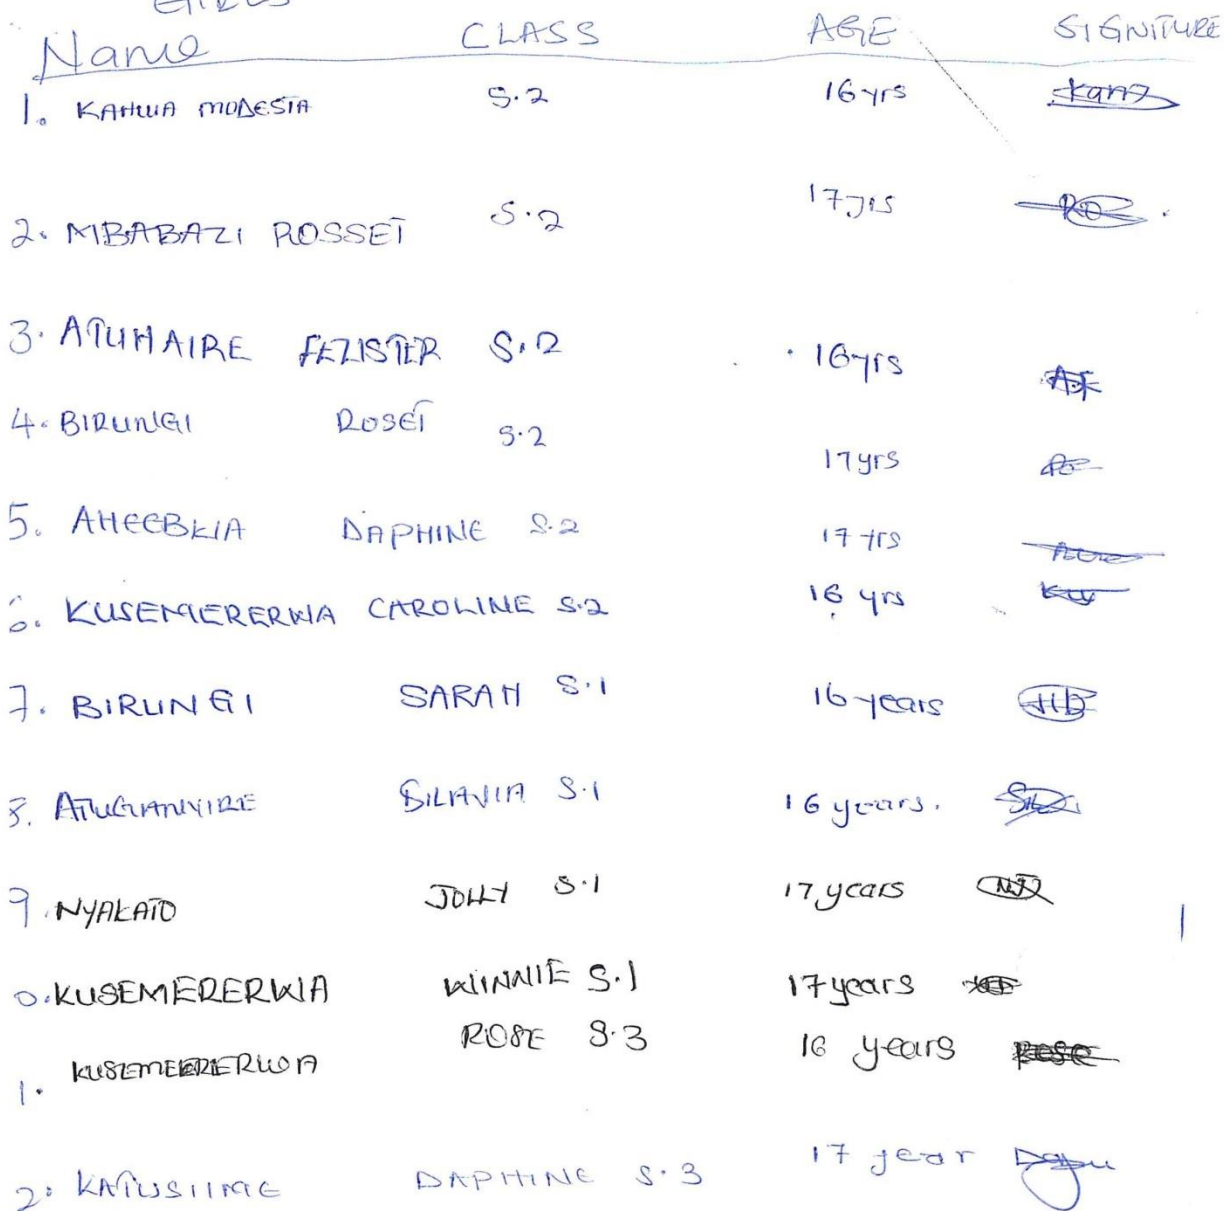 GIRLS
Name CLASS AGE SIGNITURE
1. KAHWA MODESTA S.2 16 yrs
2. MBABAZI ROSSET S.2 17 yrs RO
3. ATUHAIRE FEZISTER S.2 16 yrs AF
4. BIRUNGI ROSET S.2 17 yrs
5. AHEEBWA DAPHINE S.2 17 yrs
6. KUSEMERERWA CAROLINE S.2 16 yrs
7. BIRUNGI SARAH S.1 16 years
8. ATUGANYIRE SILAVIA S.1 16 years.
9. NYAKATO JOLLY S.1 17 years
0. KUSEMERERWA WINNIE S.1 17 years
1. KUSEMERERWA ROSE S.3 16 years Rose
2. KATUSIIME DAPHINE S.3 17 year